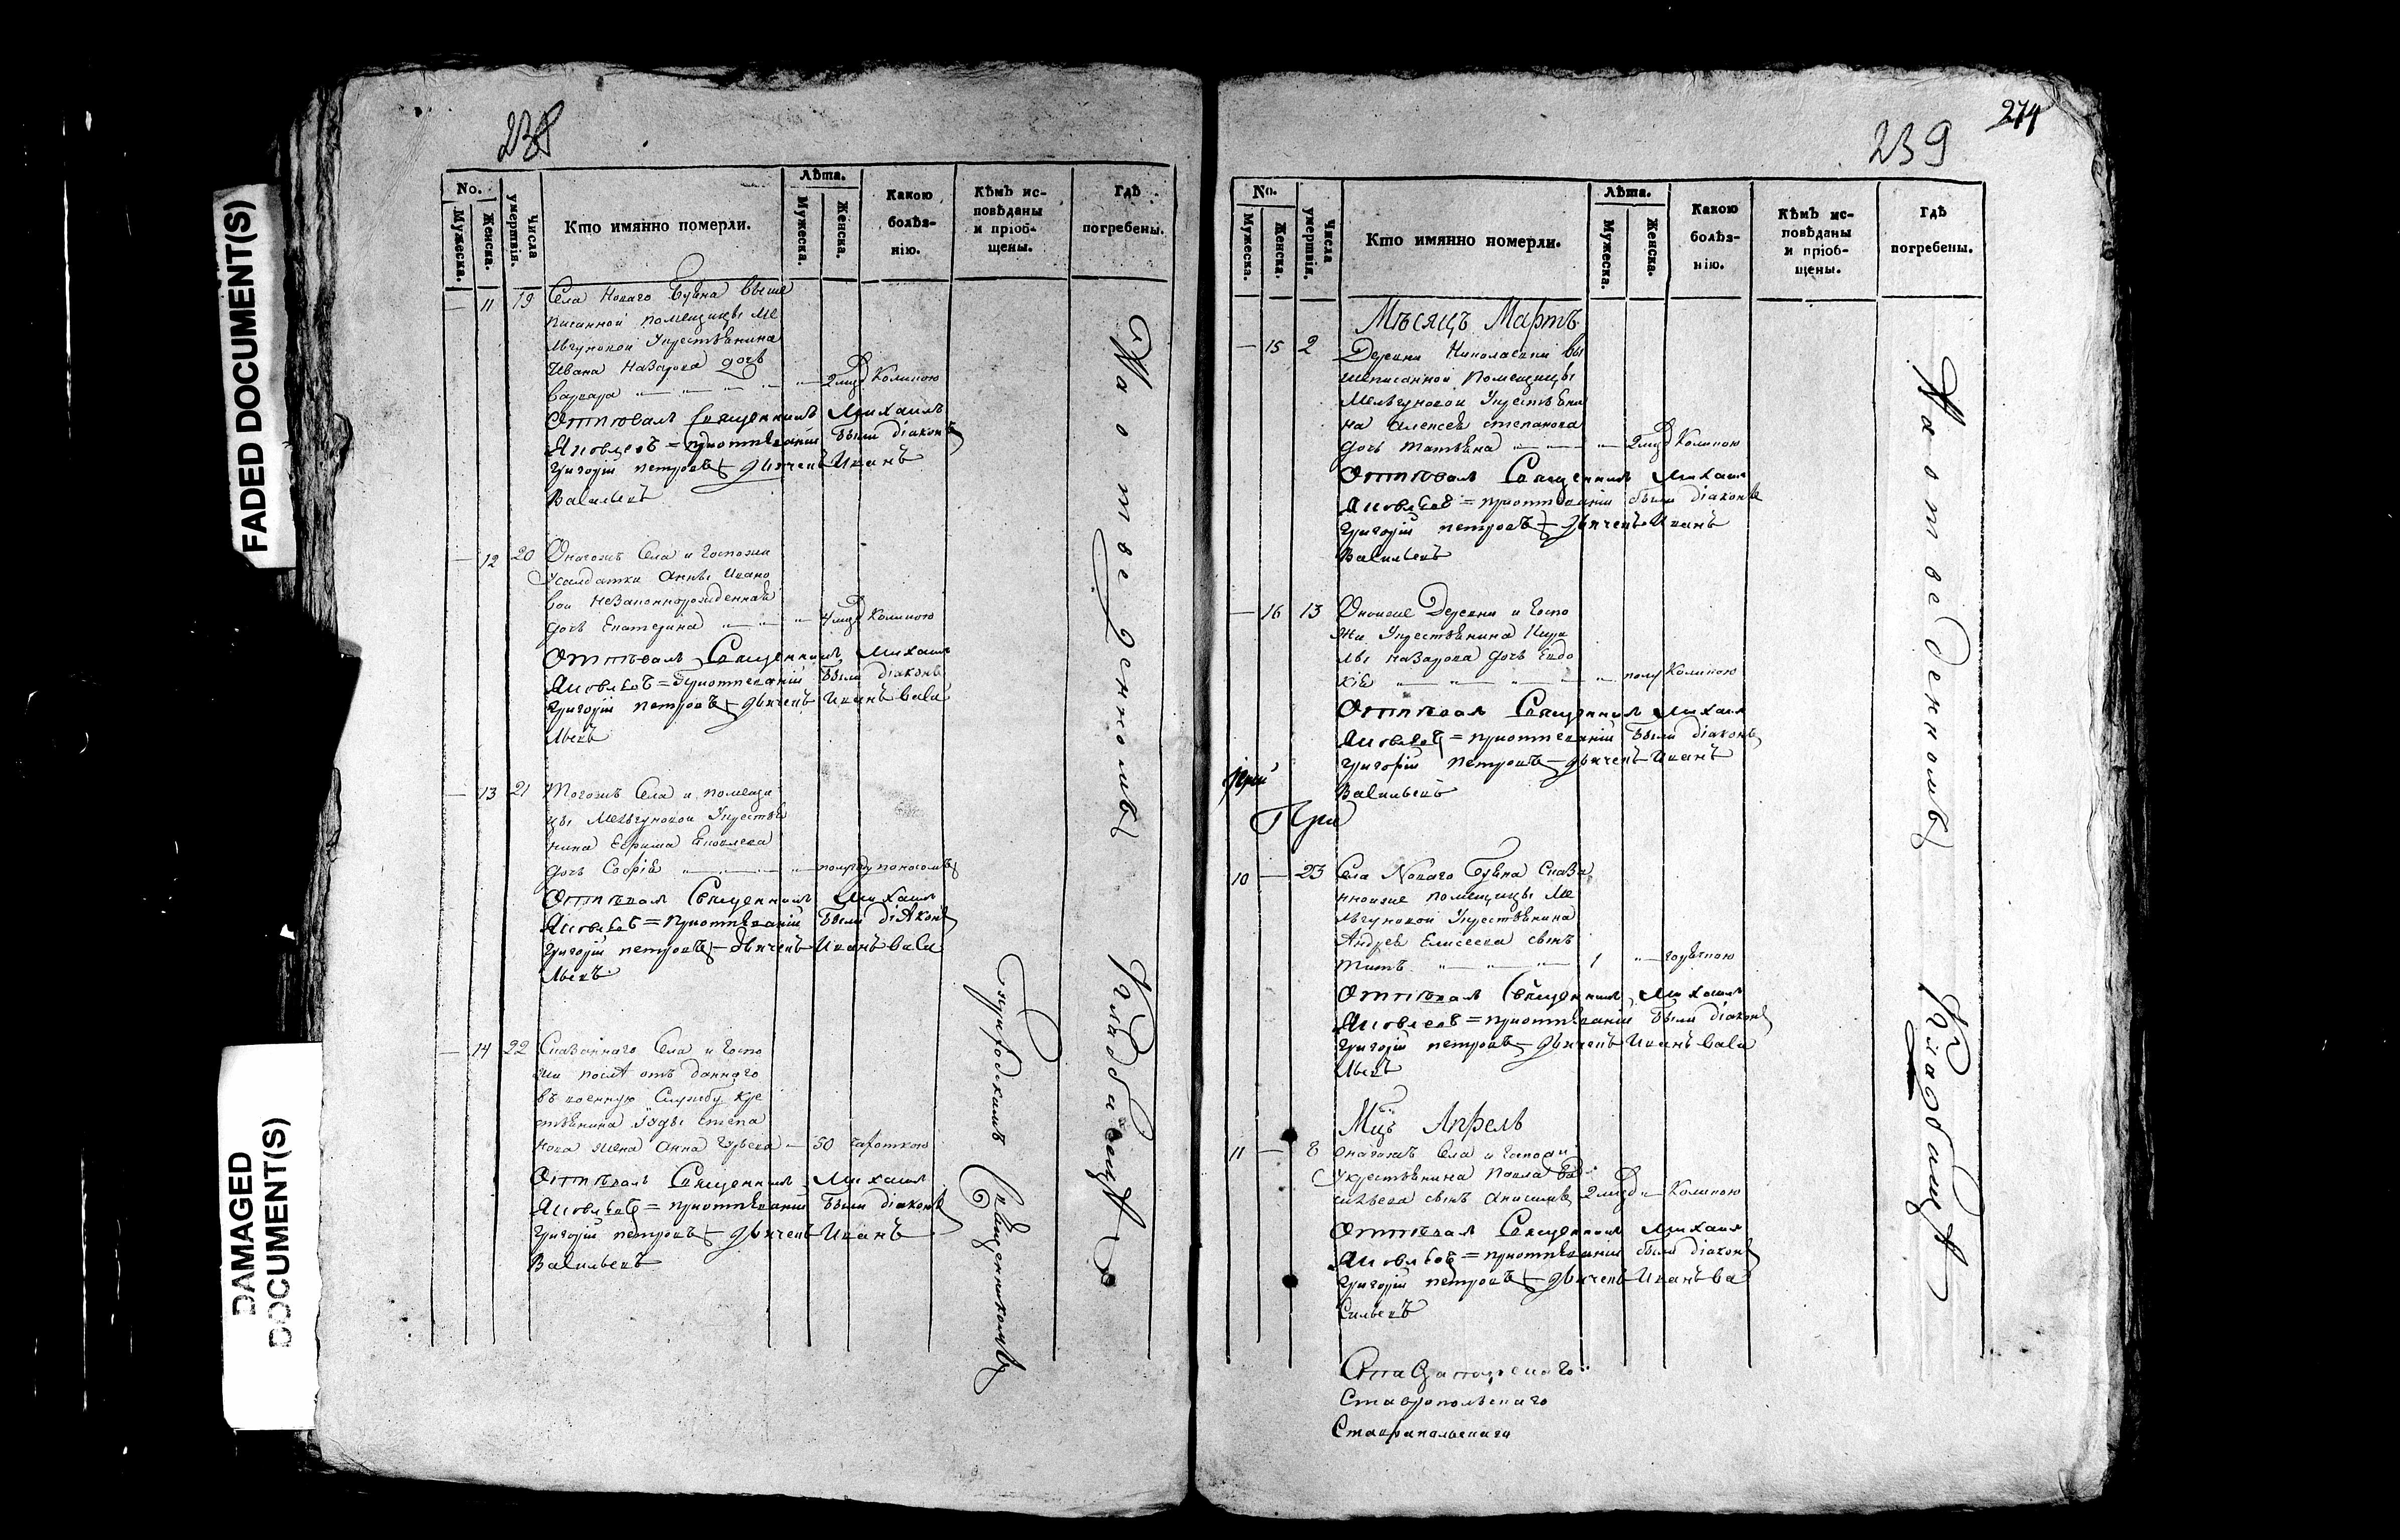 FADED DOCUMENT(S)
DAMAGED
DOCUMENT(S)
238
No.
Мужеска.
Женска.
Числа
умертвія.
Кто имянно померли.
Лѣта.
Мужеска.
Женска.
Какою
болѣз-
нію.
Кѣмъ ис-
повѣданы
и пріоб-
щены.
Гдѣ
погребены.
— 11 19 Села Новаго выше
писанной помещицы Ме
льгуновой крестьянина
Ивана Назарова дочь
Варвара 2 Коликою
Отпевалъ священникъ Михаилъ
Яковлевъ = приотпевании были діаконъ
Григорій петровъ дьячекъ Иванъ
Васильевъ
— 12 20 Оногожъ Села и Госпожи
усалдатки Анны Ивано
вой незаконнорожденная
дочь Екатерина 4 Коликою
Отпѣвалъ Священникъ Михаилъ
Яковлевъ = приотпевании были діаконъ
Григорій петровъ дьячекъ Иванъ Васи
льевъ
— 13 21 Тогожъ Села и помещи
цы Мельгуновой Укрестья
нина Ефрима Яковлева
дочь Софія поносомъ
Отпевалъ Священникъ Михаилъ
Яковлевъ = приотпевании были діаконъ
Григорій петровъ дьячекъ Иванъ Васи
льевъ
— 14 22 Сказаннаго Села и Госпо
жи посля отъ даннаго
въ военную Службу кре
стьянина степа
нова жена Анна 50 чахоткою
Отпевалъ Священникъ Михаилъ
Яковлевъ = приотпевании были діаконъ
Григорій петровъ дьячекъ Иванъ
Васильевъ
Священникомъ
На отведенномъ Кладбищѣ
274
239
No.
Мужеска.
Женска.
Числа
умертвія.
Кто имянно померли.
Лѣта.
Мужеска.
Женска.
Какою
болѣз-
нію.
Кѣмъ ис-
повѣданы
и пріоб-
щены.
Гдѣ
погребены.
Мѣсяцъ Мартъ
— 15 2 Деревни Николаевки вы
шеписанной помещицы
Мельгуновой Укрестьяни
на Алексея степанова
дочь Татьяна 2 Коликою
Отпевалъ Священникъ Михаилъ
Яковлевъ = приотпевании были діаконъ
Григорій петровъ дьячекъ Иванъ
Васильевъ
— 16 13 Оноиже Деревни и Госпо
жи Укрестьянина Кири
лы Назарова дочь Евдо
кія Коликою
Отпевалъ Священникъ Михаилъ
Яковлевъ = приотпевании были діаконъ
Григорій петровъ дьячекъ Иванъ
Васильевъ
При
При
10 — 23 Села Новаго Сказа
нноиже помещицы Ме
льгуновой Укрестьянина
Андрея Елисеева сынъ
Титъ 1 горячкою
Отпевалъ Священникъ Михаилъ
Яковлевъ = приотпевании были діаконъ
Григорій петровъ дьячекъ Иванъ Васи
льевъ
Мцъ Апрель
11 — 8 Оногожъ Села и Госпожи
Укрестьянина Павла Ва
сильева сынъ 2 Коликою
Отпевалъ Священникъ Михаилъ
Яковлевъ = приотпевании были діаконъ
Григорій петровъ дьячекъ Иванъ Ва
сильевъ
Ставропольскаго
Ставрапольскаги
На отведенномъ Кладбищѣ